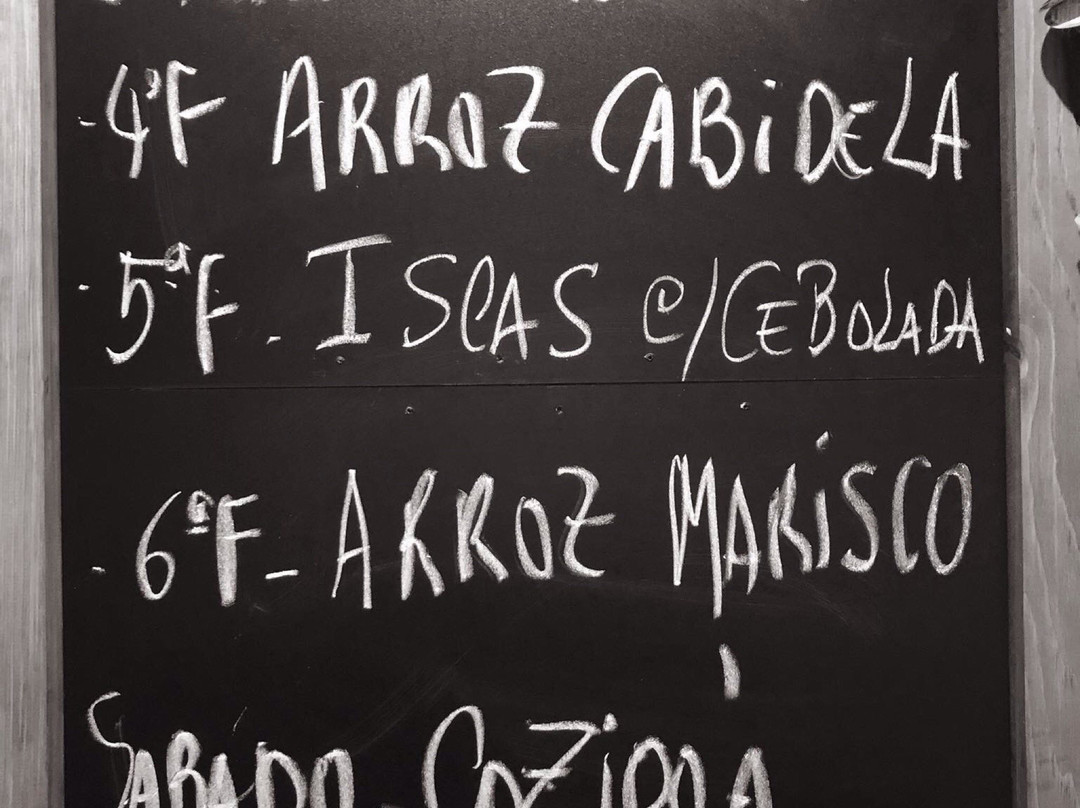 - 4ªF ARROZ CABiDELA
- 5ªF - ISCAS C/CEBOLADA
- 6ªF - ARROZ MARiSCO
SABADO COZiDO À